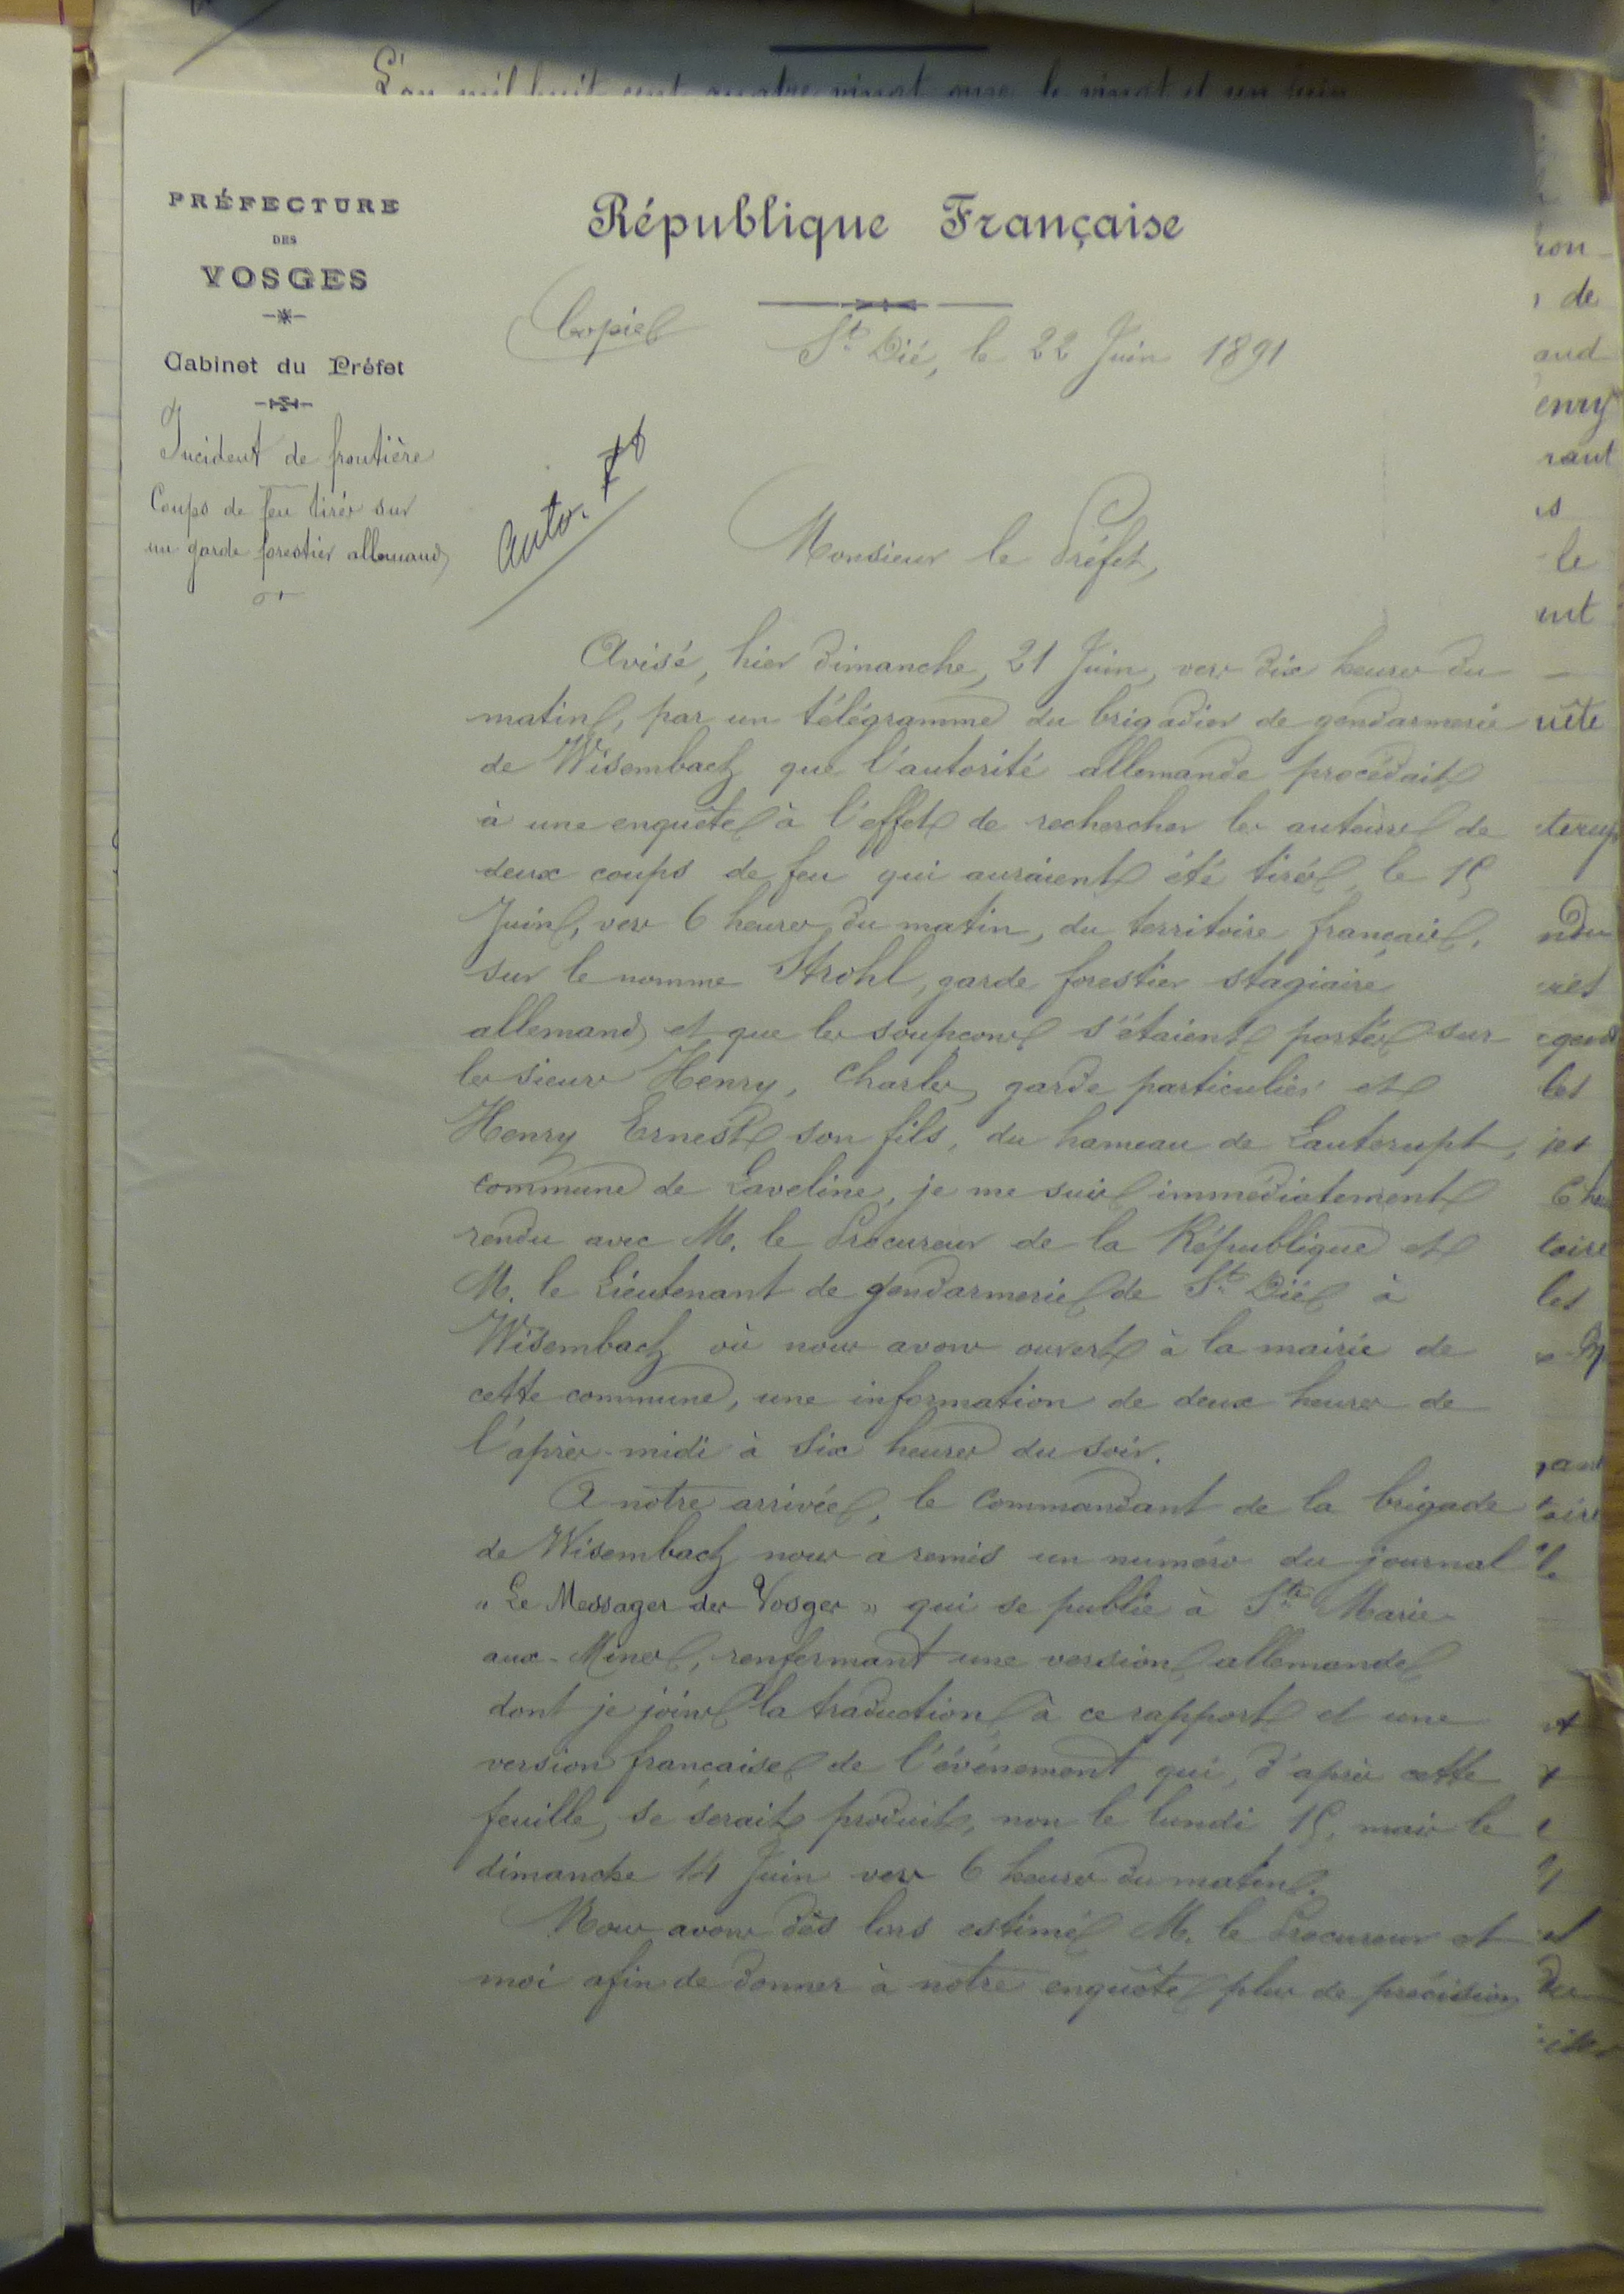 L'an mil huit cent quatre vingt onze le vingt et un Juin
PRÉFECTURE
DES
VOSGES
Cabinet du Préfet
Incident de frontière
Coups de feu tirés sur
un garde forestier allemand
République Française
Copie
St Dié, le 22 Juin 1891
Auto.
Monsieur le Préfet,
Avisé, hier dimanche, 21 Juin, vers dix heures du
matin, par un télégramme du brigadier de gendarmerie
de Wisembach que l'autorité allemande procédait
à une enquête à l'effet de rechercher les auteurs de
deux coups de feu qui auraient été tirés, le 15
Juin, vers 6 heures du matin, du territoire français,
sur le nommé Strohl, garde forestier stagiaire
allemand et que les soupçons s'étaient portés sur
les sieurs Henry, Charles, garde particulier et
Henry Ernest son fils, du hameau de Lauterupt,
commune de Laveline, je me suis immédiatement
rendu avec M. le Procureur de la République et
M. le Lieutenant de gendarmerie de St Dié à
Wisembach où nous avons ouvert à la mairie de
cette commune, une information de deux heures de
l'après-midi à six heures du soir.
A notre arrivée, le commandant de la brigade
de Wisembach nous a remis un numéro du journal
"Le Messager des Vosges" qui se publie à Ste Marie
aux-Mines, renfermant une version allemande
dont je joins la traduction à ce rapport et une
version française de l'événement qui, d'après cette
feuille, se serait produit, non le lundi 15, mais le
dimanche 14 Juin vers 6 heures du matin.
Nous avons dès lors estimé M. le Procureur et
moi afin de donner à notre enquête plus de précision